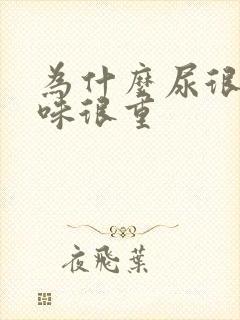 為什麼尿很
味很重
夜飛葉